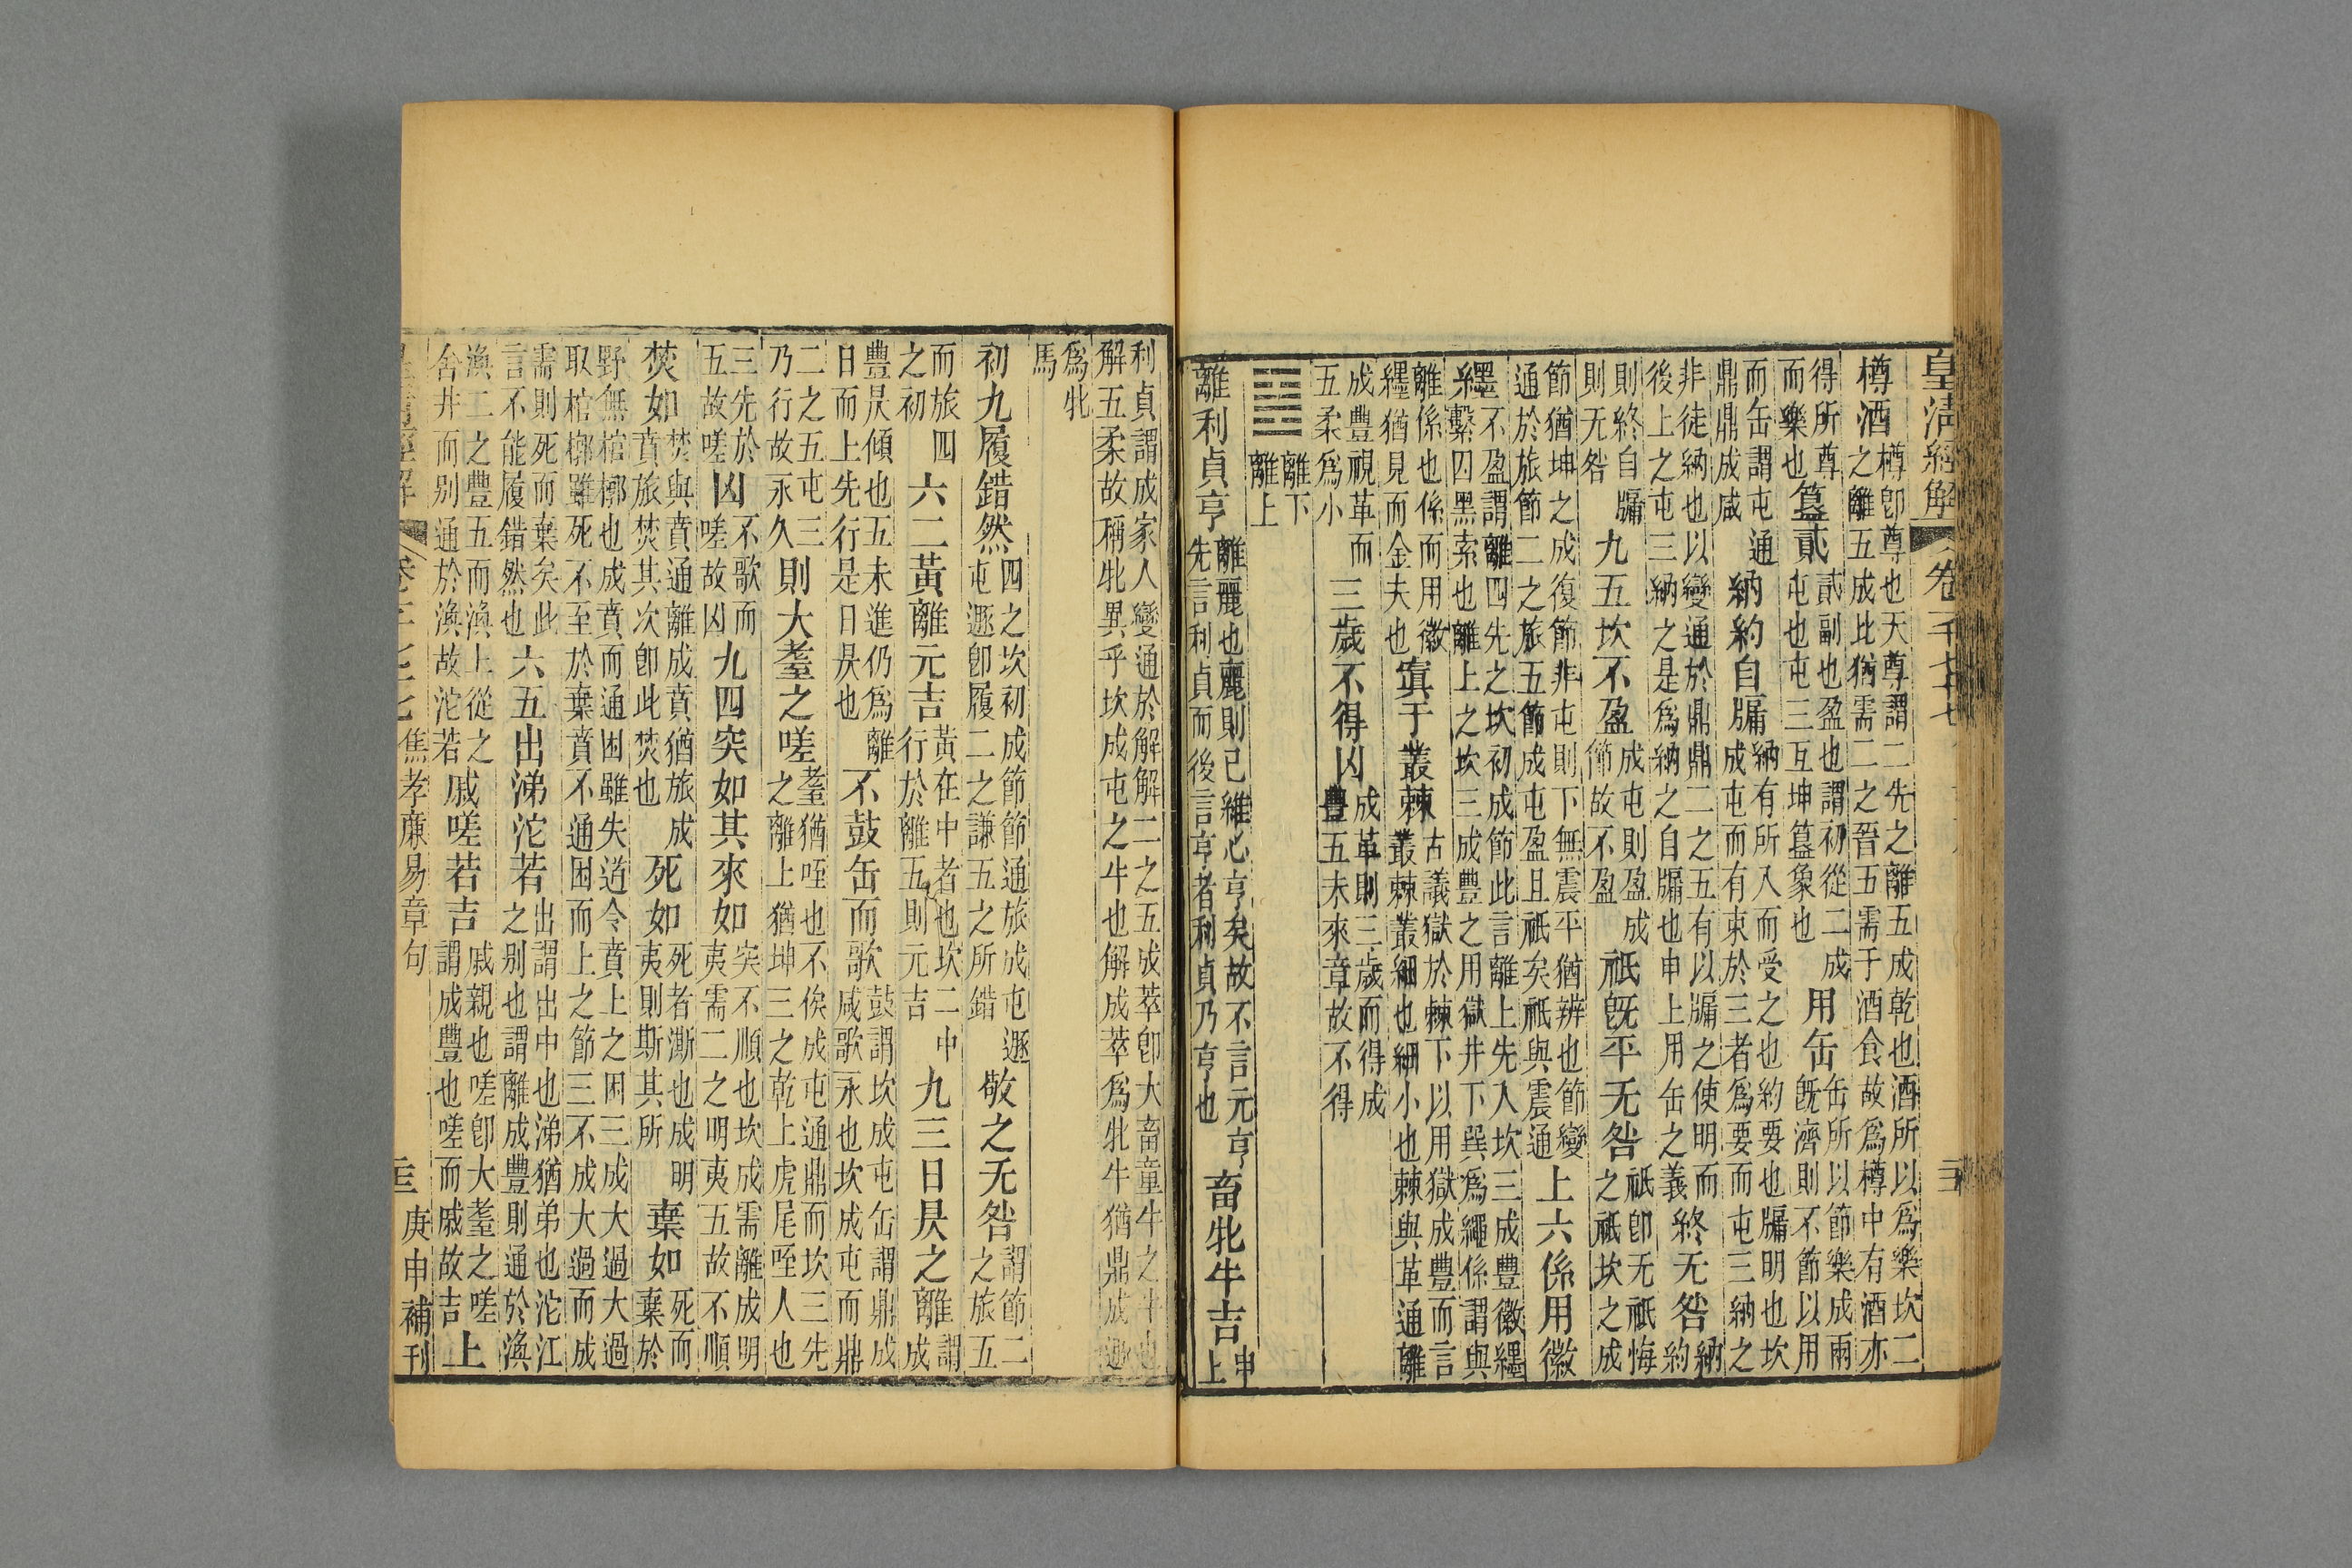 皇清經解 卷一千七十七
樽酒樽卽尊也天尊謂二先之離五成乾也酒所以爲樂坎二之離五成比猶需二之晉五需于酒食故爲樽中有酒亦
得所尊而樂也簋貳貳副也盈也謂初從二成屯也屯三互坤簋象也用缶缶所以節樂成兩旣濟則不節以用
而缶謂屯通鼎鼎成咸納約自牖納有所入而受之也約要也牖明也坎成屯而有束於三者爲要而屯三納之
非徒納也以變通於鼎鼎二之五有以牖之使明而後上之屯三納之是爲納之自牖也申上用缶之義終无咎納約
則終自牖則无咎九五坎不盈成屯則盈成節故不盈祇旣平无咎祇卽无祇悔之祇坎之成
節猶坤之成復節非屯則下無震平猶辨也節變通於旅節二之旅五節成屯盈且祇矣祇與震通上六係用徽
纆不盈謂離四先之坎初成節此言離上先入坎三成豐徽纆繫四黑索也離上之坎三成豐之用獄井下巽爲繩係謂與
離係也係而用徽纆猶見而金夫也寘于叢棘古議獄於棘下以用獄成豐而言叢棘叢細也細小也棘與革通離
成豐視革而五柔爲小三歲不得凶成革則三歲而得成豐五未來章故不得
䷝離下離上
離利貞亨離麗也麗則已維心亨矣故不言元亨先言利貞而後言亨者利貞乃亨也畜牝牛吉申上
利貞謂成家人變通於解解二之五成萃卽大畜童牛之牛也解五柔故稱牝異乎坎成屯之牛也解成萃爲牝牛猶鼎成遯
爲牝馬
初九履錯然四之坎初成節節通旅成屯遯屯遯卽履二之謙五之所錯敬之无咎謂節二之旅五
而旅四之初六二黃離元吉黃在中者也坎二中行於離五則元吉九三日昃之離謂成
豐昃傾也五未進仍爲離日而上先行是日昃也不鼓缶而歌鼓謂坎成屯缶謂鼎成咸歌永也坎成屯而鼎
二之五屯三乃行故永久則大耋之嗟耋猶咥也不俟成屯通鼎而坎三先之離上猶坤三之乾上虎尾咥人也
三先於五故嗟凶不歌而嗟故凶九四突如其來如突不順也坎成需離成明夷需二之明夷五故不順
焚如焚與賁通離成賁猶旅成賁旅焚其次卽此焚也死如死者澌也成明夷則斯其所棄如死而棄於
野無棺槨也成賁而通困雖失道令賁上之困三成大過大過取棺槨雖死不至於棄賁不通困而上之節三不成大過而成
需則死而棄矣此言不能履錯然也六五出涕沱若出謂出中也涕猶弟也沱江之別也謂離成豐則通於渙
渙二之豐五而渙上從之舍井而別通於渙故沱若戚嗟若吉戚親也嗟卽大耋之嗟謂成豐也嗟而戚故吉上
焦孝廉易章句
庚申補刊